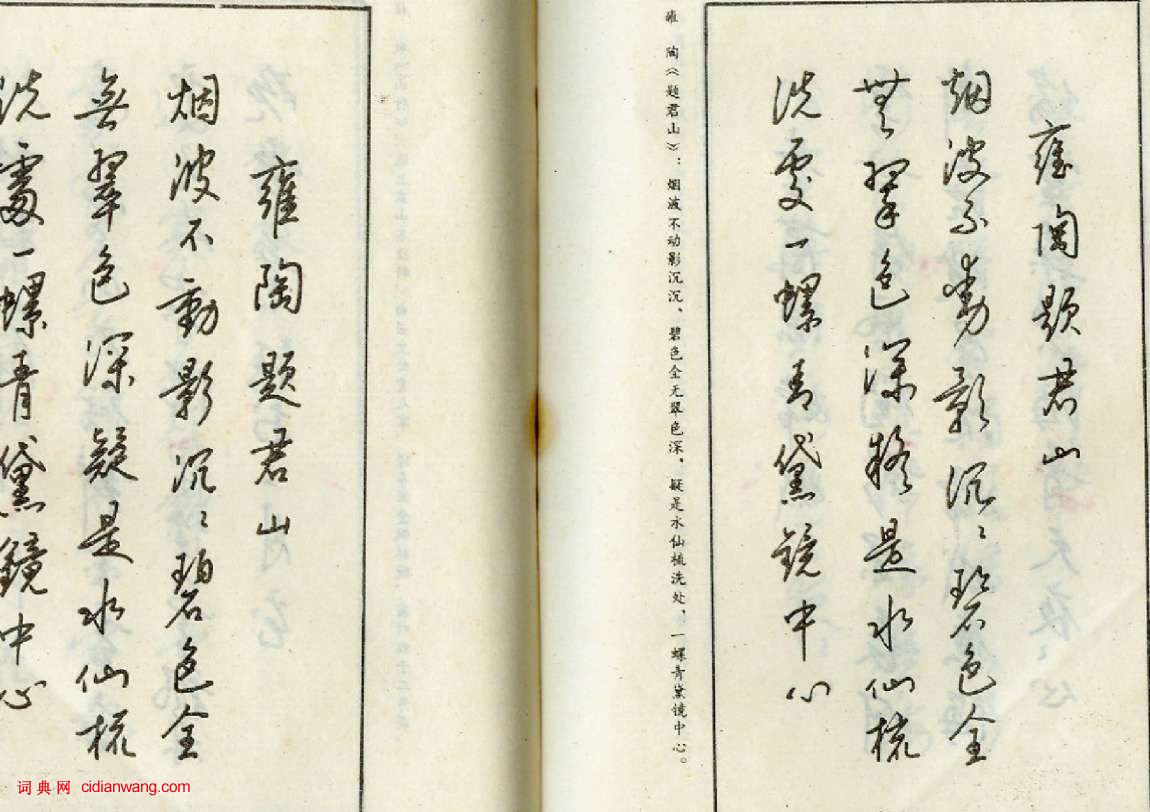 雍陶题君山
烟波不動影沉〻碧色全
無翠色深疑是水仙梳
洗處一螺青黛鏡中心
雍 陶《题君山》：烟波不动影沉沉，碧色全无翠色深，疑是水仙梳洗处，一螺青黛镜中心。
雍陶题君山
烟波不動影沉〻碧色全
無翠色深疑是水仙梳
洗處一螺青黛鏡中心
词典网 cidianwang.com